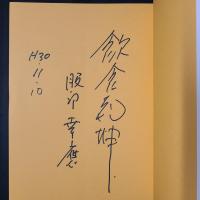 飲食乾坤
服部幸應
H30.11.10